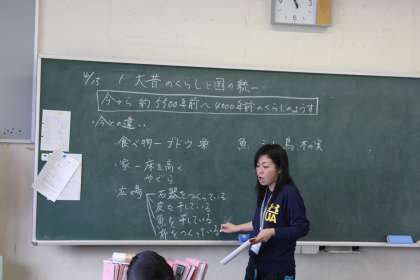 4/13 1 大昔のくらしと国の統一
今から約5500年前〜4000年前のくらしのようす
・今との違い
食べ物ーブドウ 栗 魚 鳥 木の実
家ー床を高く
やぐら
広場 石器をつくっている
皮を干している
魚を干している
をつくっている